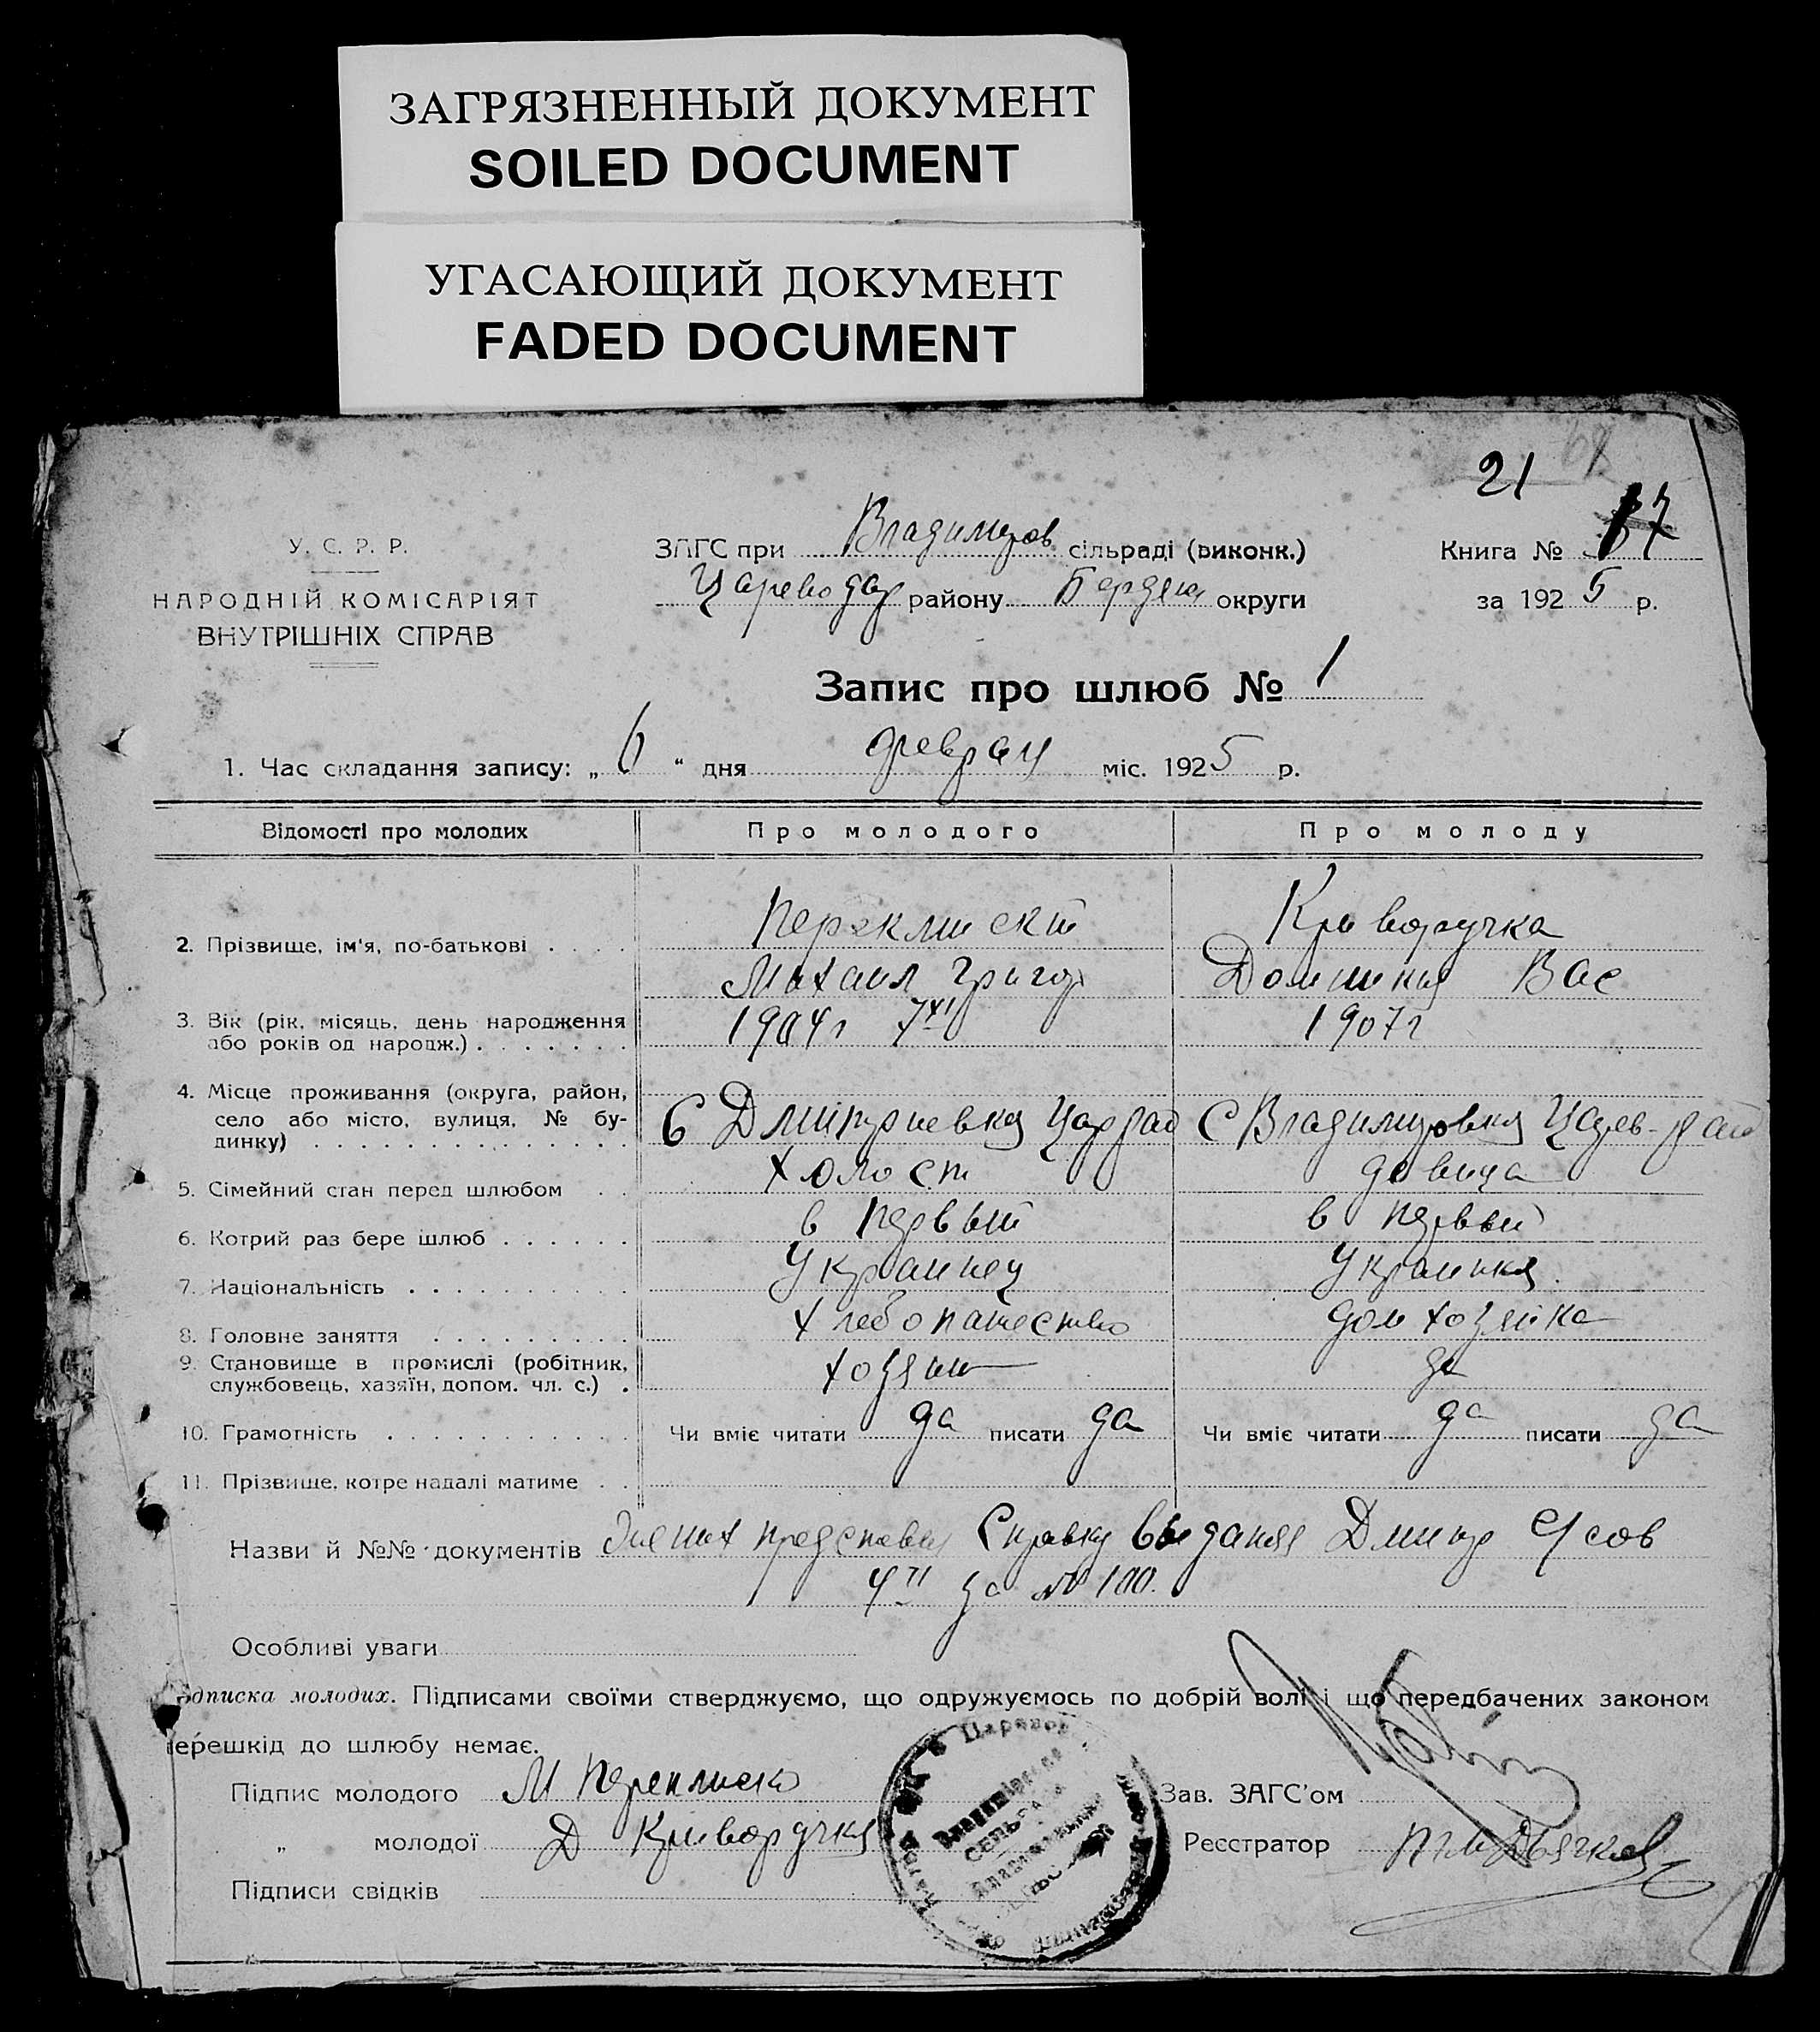 ЗАГРЯЗНЕННЫЙ ДОКУМЕНТ
SOILED DOCUMENT
УГАСАЮЩИЙ ДОКУМЕНТ
FADED DOCUMENT
21
У. С. Р. Р.
НАРОДНІЙ КОМІСАРІЯТ
ВНУТРІШНІХ СПРАВ
ЗАГС при Владимиров сільраді (виконк.)
району Бердян округи
Книга №
за 1925 р.
Запис про шлюб № 1
1. Час складання запису: „ 6 “ дня міс. 1925 р.
Відомості про молодих Про молодого Про молоду
2. Прізвище, ім'я, по-батькові . . . . Криворучка
Михаил Григор Вас
3. Вік (рік, місяць, день народження 1904 г 7 XI 1907 г
або років од народж.) . . . . . . .
4. Місце проживання (округа, район,
село або місто, вулиця, № бу- С Дмитриевка Цар рай С Владимировка Царев-рай
динку) . . . . . . . . . . . . .
5. Сімейний стан перед шлюбом . . холост девица
6. Котрий раз бере шлюб . . . . . . в первый в первый
7. Національність . . . . . . . . . . Украинец Украинка
8. Головне заняття . . . . . . . . . хлебопашество дом хозяйка
9. Становище в промислі (робітник,
службовець, хазяїн, допом. чл. с.) . хозяин
10. Грамотність . . . . . . . . . . Чи вміє читати да писати да Чи вміє читати да писати да
11. Прізвище, котре надалі матиме . .
Назви й №№ документів Справку
за № 100.
Особливі уваги
дписка молодих. Підписами своїми стверджуємо, що одружуємось по добрій волі і що передбачених законом
перешкід до шлюбу немає.
Підпис молодого М Зав. ЗАГС'ом
„ молодої Д Криворучка Реєстратор
Підписи свідків